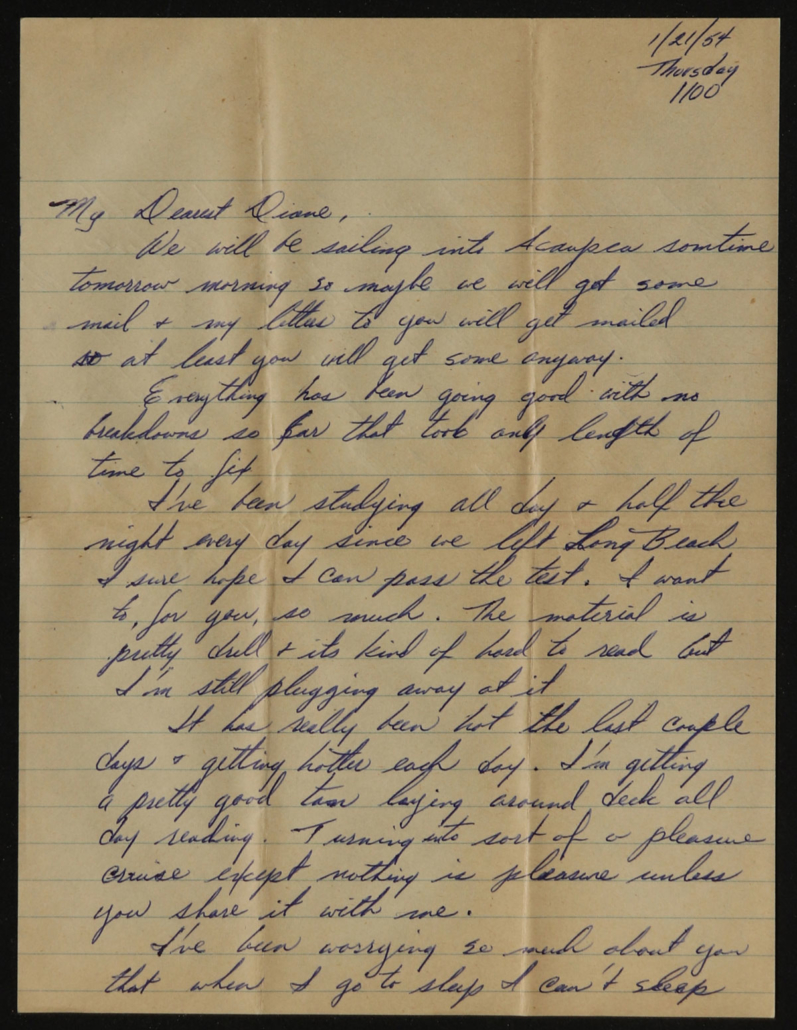 1/21/54
Thursday
1100
My Dearest Diane,
We will be sailing into Acaupca somtime
tomorrow morning so maybe we will get some
mail & my letters to you will get mailed
at least you will get some anyway.
Everything has been going good with no
breakdowns so far that took any length of
time to fix
I've been studying all day & half the
night every day since we left Long Beach
I sure hope I can pass the test. I want
to, for you, so much. The material is
pretty drull & its kind of hard to read but
I'm still plugging away at it
It has really been hot the last couple
days & getting hotter each day. I'm getting
a pretty good tan laying around deck all
day reading. Turning into sort of a pleasure
cruise except nothing is pleasure unless
you share it with me.
I've been worrying so much about you
that when I go to sleep I can't sleep